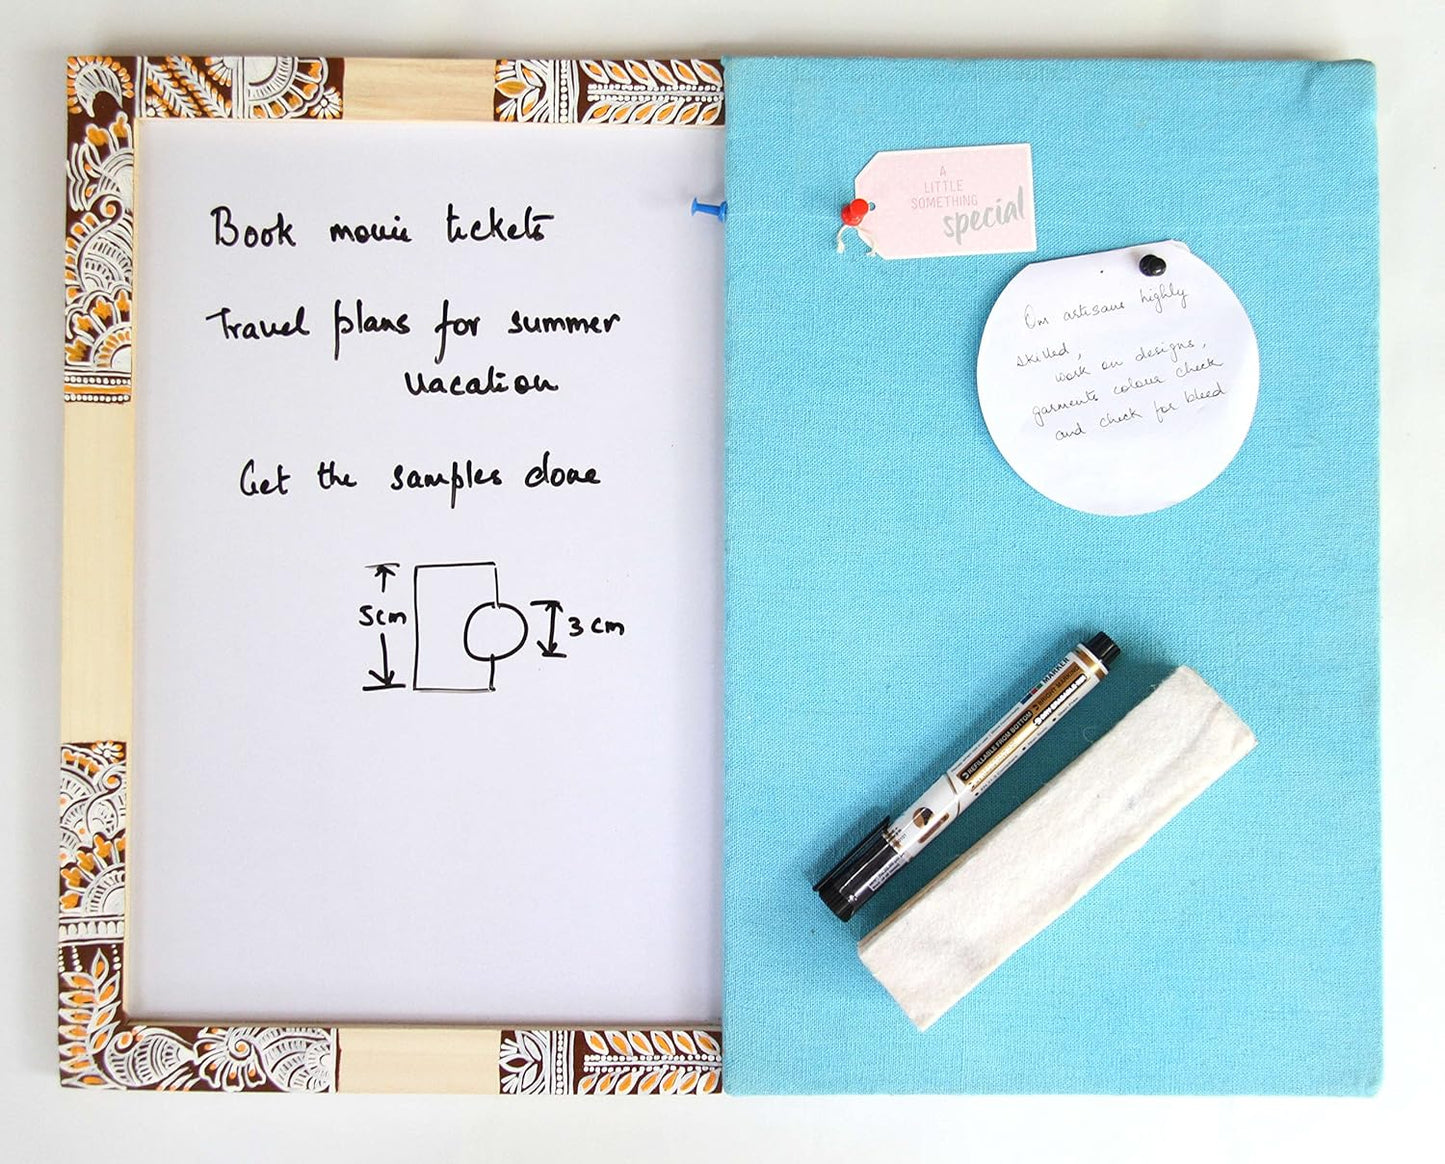 Book movie tickets
Travel plans for summer
vacation
Get the samples done
5cm
3 cm
A
LITTLE
SOMETHING
special
Our artisans highly
skilled,
work on designs,
garments colour check
and check for bleed
MARKER
REFILLABLE FROM BOTTOM
BRIGHT MARKING